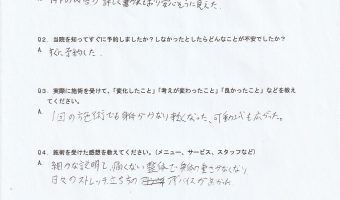 Q2. 当院を知ってすぐに予約しましたか？しなかったとしたらどんなことが不安でしたか？
A. すぐに予約した.
Q3. 実際に施術を受けて、「変化したこと」「考えが変わったこと」「良かったこと」などを教え
てください。
A. 1回の施術でも身体がかなり軽くなった、可動域も広がった。
Q4. 施術を受けた感想を教えてください。（メニュー、サービス、スタッフなど）
A. 細かな説明で、痛くない整体で身体の重さがなくなり
日々のストレッチ、立ち方のアドバイスが良かった。